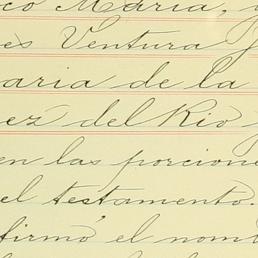 co Maria, y
es Ventura
aria de la
ez del Rio y
en las porcione
el testamento.
firmó el nom